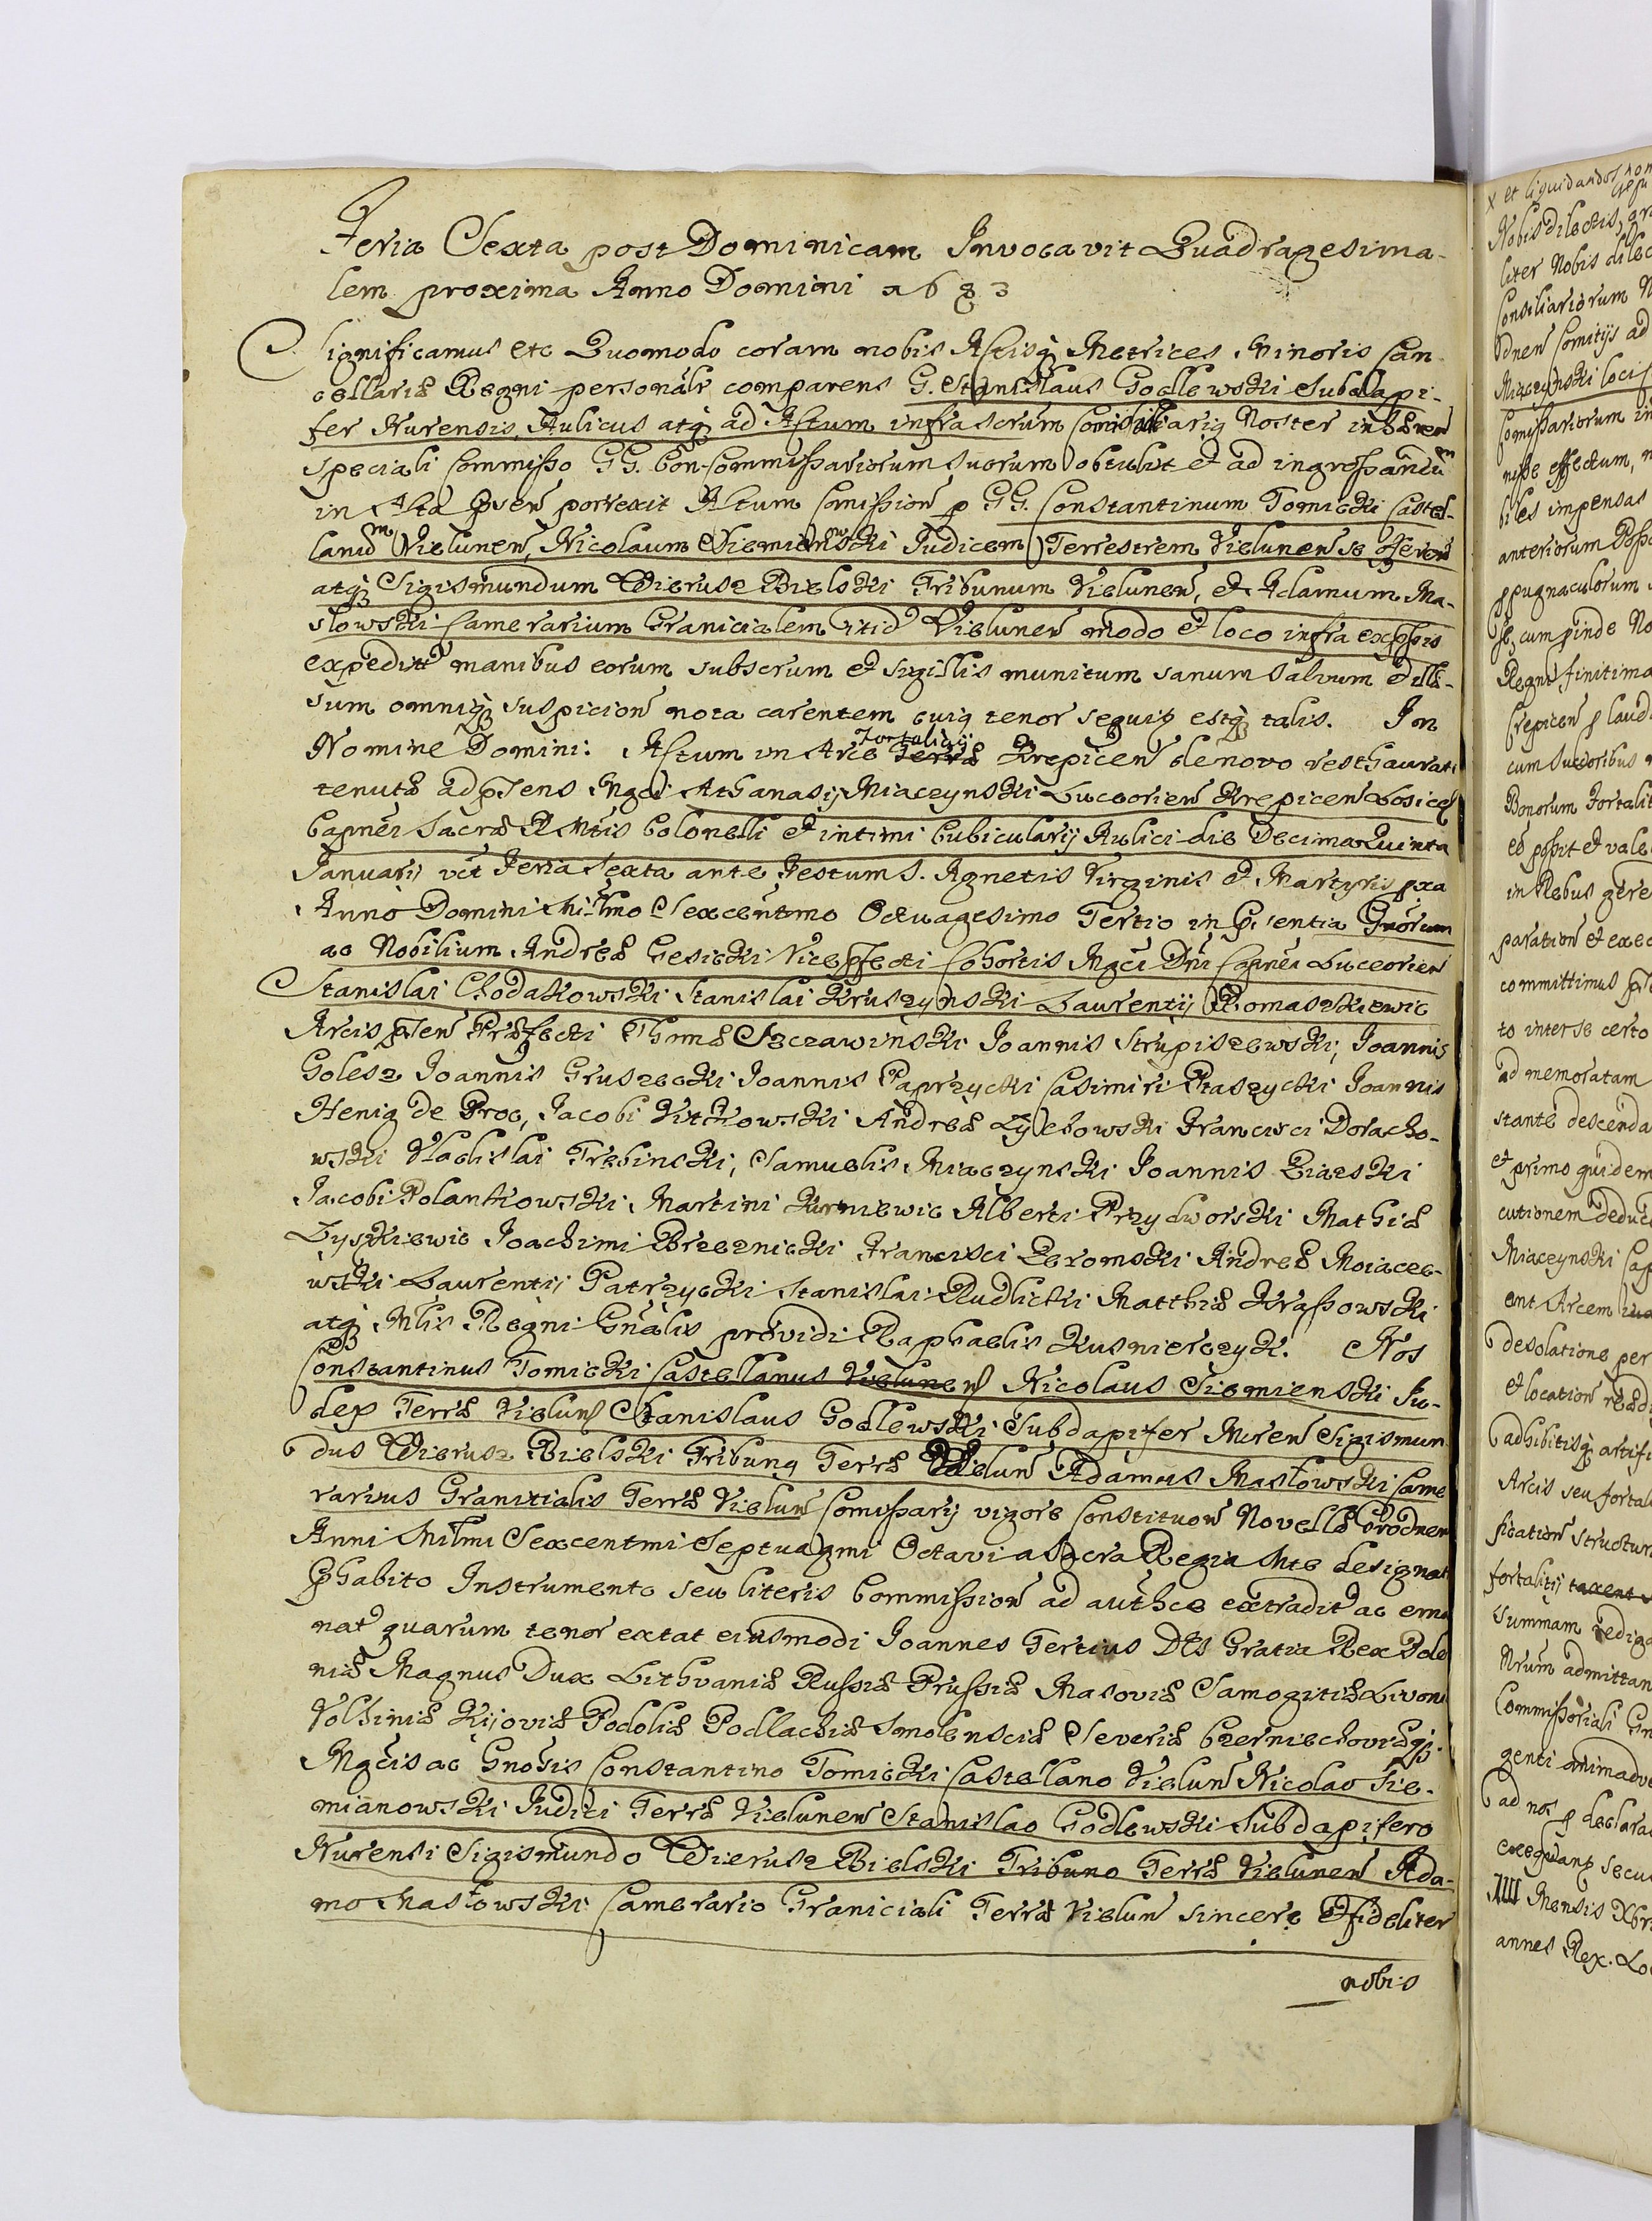 Feria Sexta post Dominicam Invocavit Quadragesima-
lem proxima Anno Domini 1683
Significamus etc Quomodo coram nobis Actisq Metrices Minoris Can-
cellariæ Regni personalr comparens G. Stanislaus Godlewski Subdapi-
fer Nurensis, Aulicus atq ad Actum infrascrum Noster inhæren
speciali Commisso GG. Con-Commissariorum suorum obtulit et ad ingrossandum
in Acta porrexit Actum Comission p GG. Constantinum Tomicki Castel-
lanum Vielunen, Nicolaum Siemienski Judicem Terrestrem Vielunense
atq Sigismundum Wierusz Bielski Tribunum Vielunen, et Adamum Ma-
slowski Camerarium Granicialem itid Vielunen modo et loco infra expssis
expeditt manibus eorum subscrum et sigillis munitum sanum salvum et illæ-
sum omniq suspicion nota carentem cuiq tenor sequit estq talis. In
Nomine Domini: Actum in Arce Terræ Fortalicij Krepicen denovo resthaurati
tenutæ ad psens Mgci Athanasij Miaczynski Luceorien Krepicen Losicen
Capnei Sacræ R Mtis Colonelli et intimi Cubicularij Aulici die Decima Quinta
Januarij vet Feria sexta ante Festum S. Agnetis Virginis et Martyris pxa
Anno Domini Millmo Sexcentmo Octuagesimo Tertio in Psentia Gnorum
ac Nobilium Andreæ Gesicki Vicepfecti Cohortis Mgci Dni Capnei Luceorien
Stanislai Chodakowski Stanislai Kruszynski Laurentij Romaszkiewic
Arcis psen Præfecti Thomæ Szczawinski Joannis Strupiszewski, Joannis
Golesz Joannis Gruszecki Joannis Paprzycki Casimiri Ptaszycki Joannis
Henig de Proc, Jacobi Vitkowski Andreæ Zylchowski Francisci Doracho-
wski Vladislai Trebinski, Samuelis Miaczynski Joannis
Jacobi Polankowski Martini Kurniewic Alberti Przydworski Mathiæ
Zyszkiewic Joachimi Brzeznicki Francisci Zeromski Andreæ
wski Laurentij Patrzycki Stanislai Rudlicki Matthiæ Krassowski
atq Mlis Regni Gnalis providi Raphaelis Kusnierczyk. Nos
Constantinus Tomicki Castellanus Vielunen Nicolaus Siemienski Ju-
dex Terræ Vielun Stanislaus Godlewski Subdapifer Nuren Sigismun
dus Wierusz Bielski Tribunq Terræ Vielun Adamus Maslowski Came
rarius Granitialis Terræ Vielun Comissarij vigore Constituon Novellæ Grodnen
Anni Milmi Sexcentmi Septuagmi Octavi a Sacra Regia Mte designat
Phabito Instrumento seu literis Commission ad authce extradit ac ema
nat quarum tenor extat eiusmodi Joannes Tertius Dei Gratia Rex Polo
niæ Magnus Dux Lithvaniæ Russiæ Prussiæ Masoviæ Samogitiæ Livoni
Volhiniæ Kijoviæ Podoliæ Podlachiæ Smolensciæ Severiæ Czerniechoviæqз
Mgcis ac Gnosis Constantino Tomicki Castellano Vielun Nicolao Sie-
mianowski Judici Terræ Vielunen Stanislao Godlewski Subdapifero
Nurensi Sigismundo Wierusz Bielski Tribuno Terræ Vielunen Ada-
mo Maslowski Camerario Graniciali Terræ Vielun sincere et fideliter
nobis
x et liquidandos
Nobis dilectis,
liter Nobis dilec
Consiliariorum N
dnen Comitijs ad
Miaczynski loci
Comissariorum in
nisse effectum,
biles impensas
anteriorum Poss
ppugnaculorum
cum pinde No
Regni finitima
Crepicen p laud
cum Succoribus
Bonorum Fortalit
eo possit et vale
in Rebus gere
paration et exec
committimus
to interse certo
ad memoratam
stante descenda
et primo quidem
cutionem deduc
Miaczynski Cap
ent Arcem
desolatione per
et location
adhibitisq artifi
Arcis seu fortali
fication structur
fortalitij taxent
summam rediga
Nrum admittan
Commissoriali Gn
genti animadve
ad nos p declara
exequant secu
IIII Mensis Xbr
annes Rex. Lo